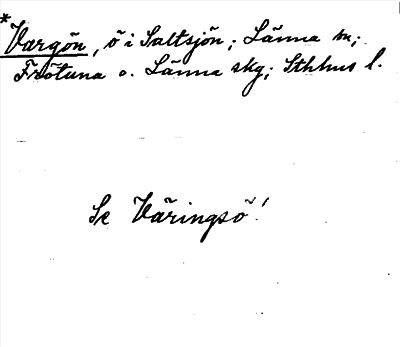 *Vargön, ö i Saltsjön; Länna sn;
Frötuna o. Länna skg; Sthlms l.
Se Väringsö!